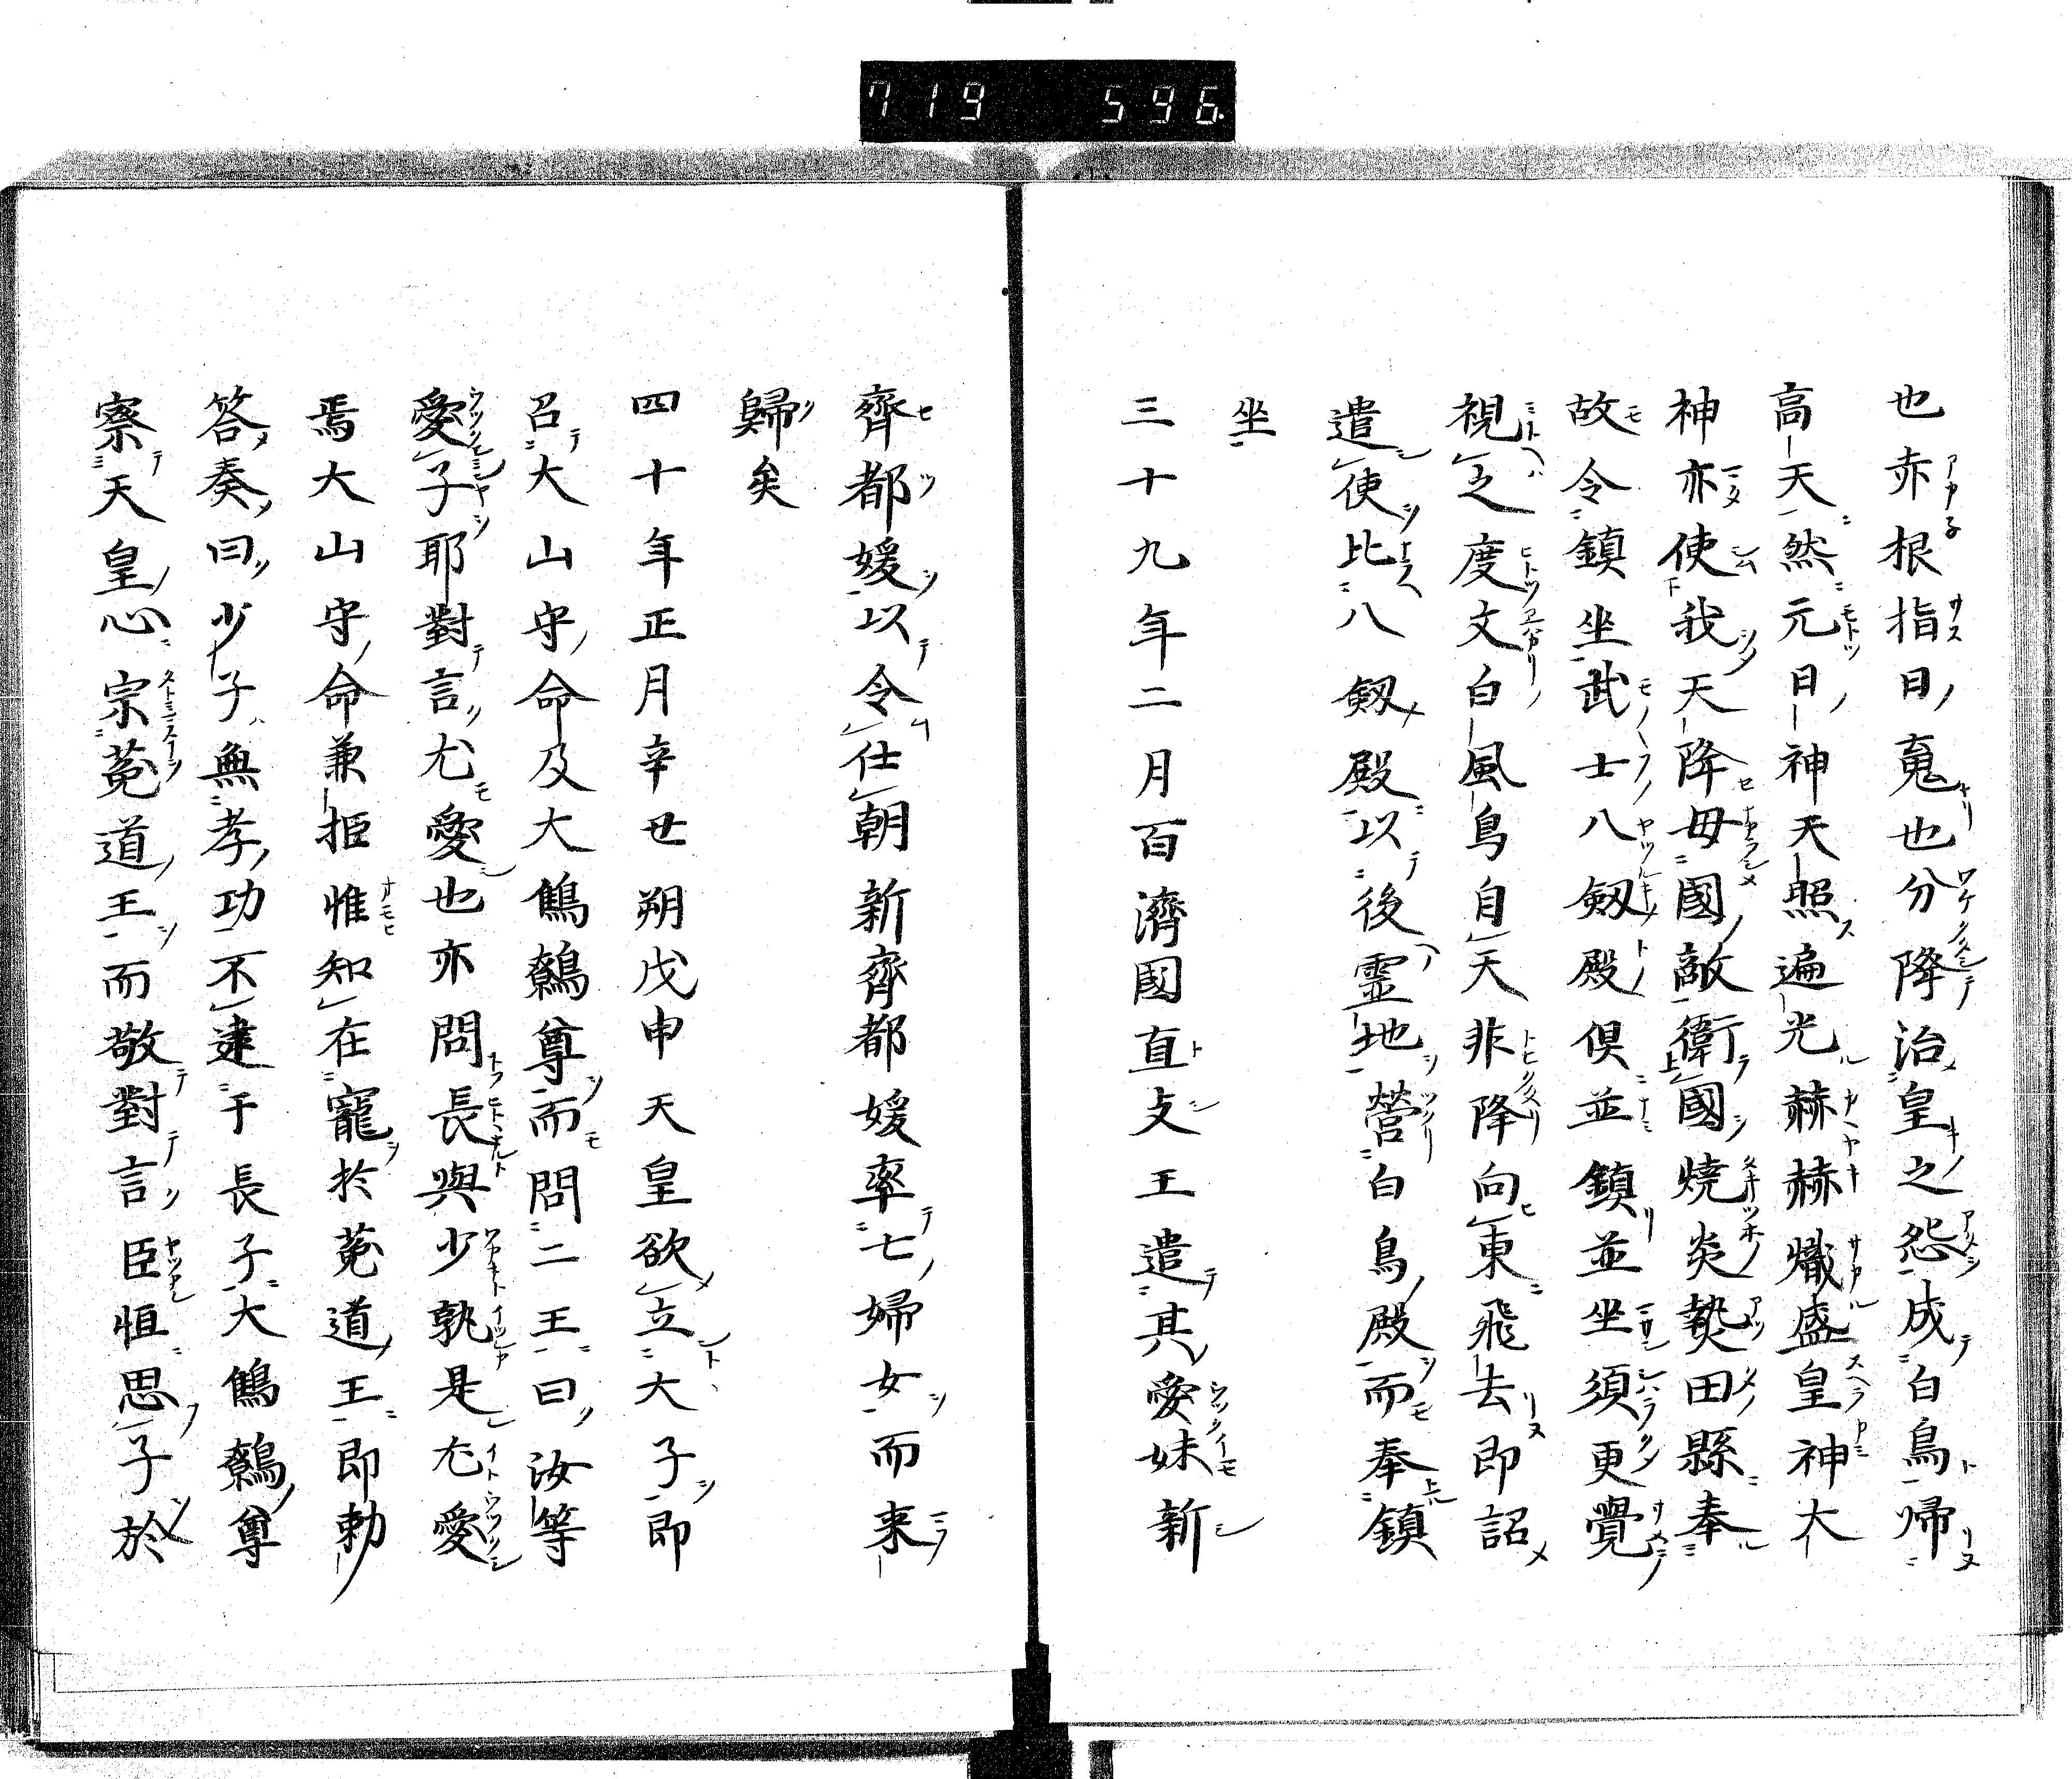 719 596.
也赤根指日嵬也分降治皇之怨成白鳥帰
高天然元日神天照遍光赫赫熾盛皇神大
神亦使我天降毋國敵衛國焼炎𤍠田縣奉
故令鎮坐武士八剱殿倶並鎮並坐須更覺
視之度文白風鳥自天非降向東飛去即詔
遣使比八剱殿以後霊地營白鳥殿而奉鎮
坐
三十九年二月百濟國直支王遣其愛妹新
齊都媛以令仕朝新齊都媛率七婦女而来
歸矣
四十年正月辛丑朔戊申天皇欲立大子即
召大山守命及大鷦鷯尊而問二王曰汝等
愛子耶對言尤愛也亦問長與少孰是尤愛
焉大山守命兼拒惟知在寵於菟道王即勅
答奏曰少子無孝功不逮于長子大鷦鷯尊
察天皇心宗菟道王而敬對言臣恒思子於